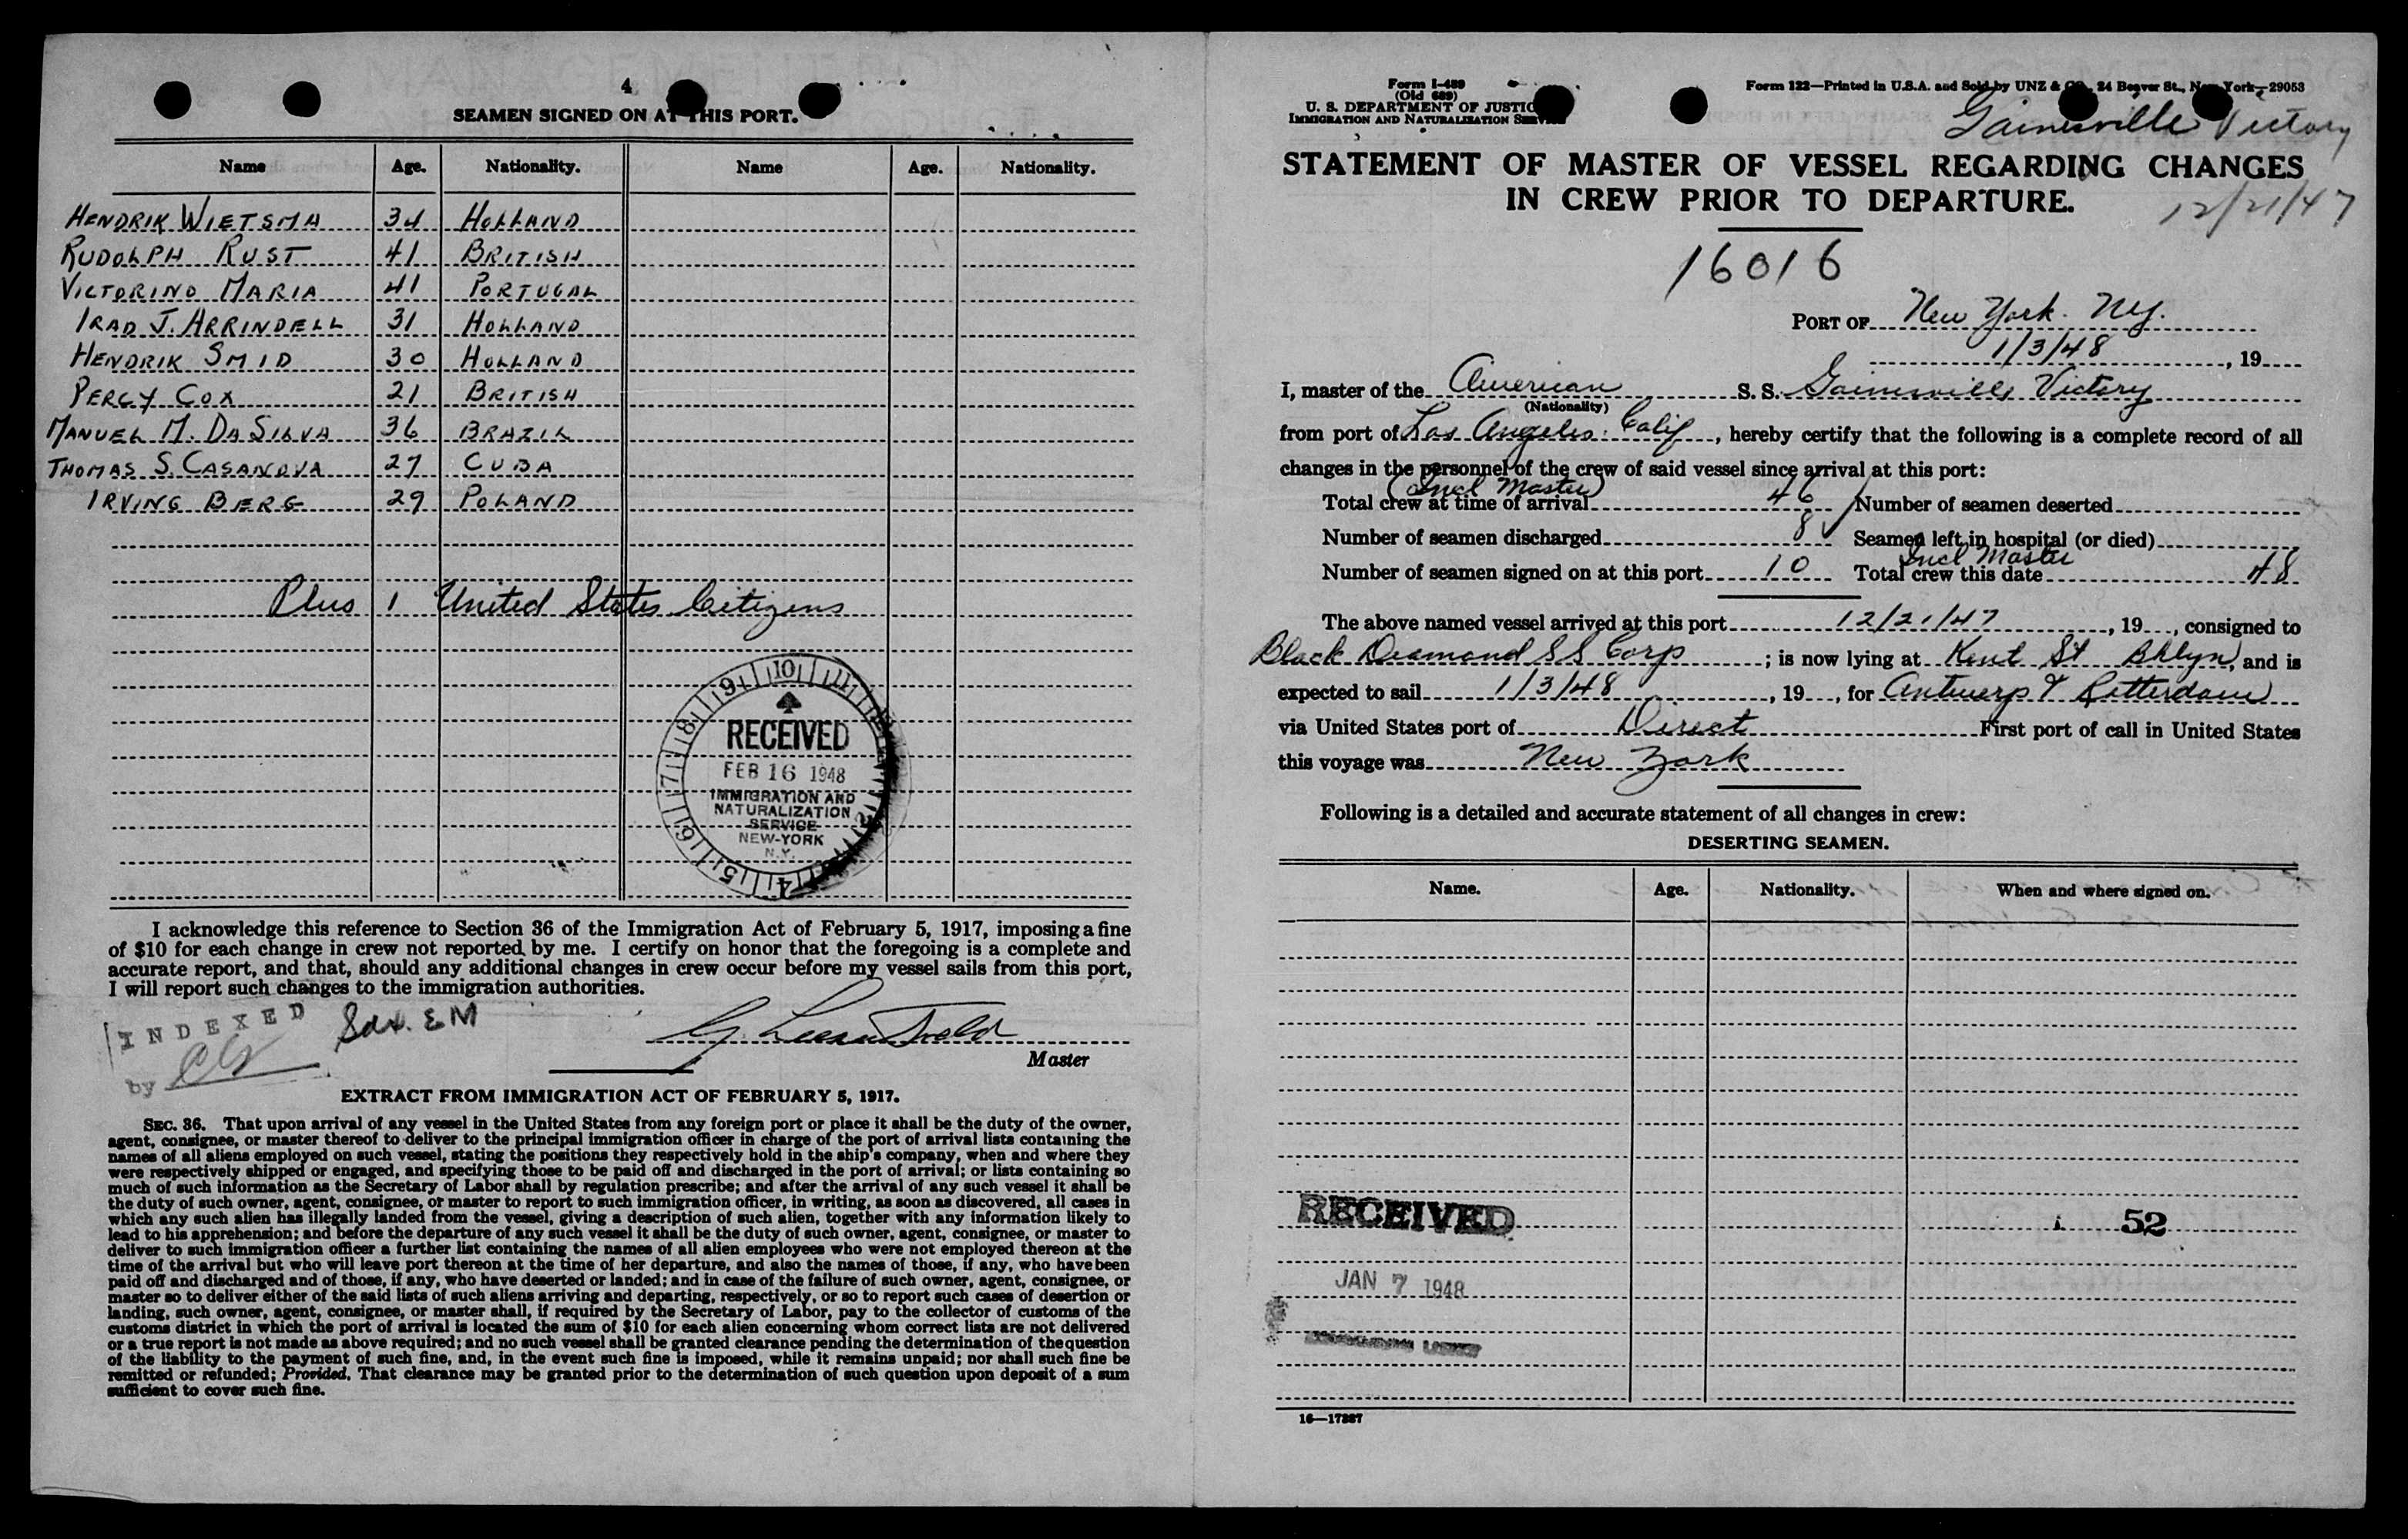 4
SEAMEN SIGNED ON AT THIS PORT.
Name Age. Nationality. Name Age. Nationality.
HENDRIK WIETSMA 34 HOLLAND
RUDOLPH RUST 41 BRITISH
VICTORINO MARIA 41 PORTUGAL
IRAD J. ARRINDELL 31 HOLLAND
HENDRIK SMID 30 HOLLAND
PERCY COX 21 BRITISH
MANUEL M. DA SILVA 36 BRAZIL
THOMAS S. CASANOVA 27 CUBA
IRVING BERG 29 POLAND
Plus 1 United States Citizens
RECEIVED
FEB 16 1948
IMMIGRATION AND
NATURALIZATION
SERVICE
NEW-YORK
N.Y.
I acknowledge this reference to Section 36 of the Immigration Act of February 5, 1917, imposing a fine
of $10 for each change in crew not reported by me. I certify on honor that the foregoing is a complete and
accurate report, and that, should any additional changes in crew occur before my vessel sails from this port,
I will report such changes to the immigration authorities.
INDEXED
by
Master
EXTRACT FROM IMMIGRATION ACT OF FEBRUARY 5, 1917.
SEC. 36. That upon arrival of any vessel in the United States from any foreign port or place it shall be the duty of the owner,
agent, consignee, or master thereof to deliver to the principal immigration officer in charge of the port of arrival lists containing the
names of all aliens employed on such vessel, stating the positions they respectively hold in the ship's company, when and where they
were respectively shipped or engaged, and specifying those to be paid off and discharged in the port of arrival; or lists containing so
much of such information as the Secretary of Labor shall by regulation prescribe; and after the arrival of any such vessel it shall be
the duty of such owner, agent, consignee, or master to report to such immigration officer, in writing, as soon as discovered, all cases in
which any such alien has illegally landed from the vessel, giving a description of such alien, together with any information likely to
lead to his apprehension; and before the departure of any such vessel it shall be the duty of such owner, agent, consignee, or master to
deliver to such immigration officer a further list containing the names of all alien employees who were not employed thereon at the
time of the arrival but who will leave port thereon at the time of her departure, and also the names of those, if any, who have been
paid off and discharged and of those, if any, who have deserted or landed; and in case of the failure of such owner, agent, consignee, or
master so to deliver either of the said lists of such aliens arriving and departing, respectively, or so to report such cases of desertion or
landing, such owner, agent, consignee, or master shall, if required by the Secretary of Labor, pay to the collector of customs of the
customs district in which the port of arrival is located the sum of $10 for each alien concerning whom correct lists are not delivered
or a true report is not made as above required; and no such vessel shall be granted clearance pending the determination of the question
of the liability to the payment of such fine, and, in the event such fine is imposed, while it remains unpaid; nor shall such fine be
remitted or refunded; Provided, That clearance may be granted prior to the determination of such question upon deposit of a sum
sufficient to cover such fine.
Form I-489
(Old 689)
U. S. DEPARTMENT OF JUSTICE
IMMIGRATION AND NATURALIZATION SERVICE
Form 122—Printed in U.S.A. and Sold by UNZ & CO., 24 Beaver St., New York—29053
Gainesville Victory
STATEMENT OF MASTER OF VESSEL REGARDING CHANGES
IN CREW PRIOR TO DEPARTURE.
12/21/47
16016
PORT OF New York. NY.
1/3/48, 19
I, master of the American S. S. Gainesville Victory
(Nationality)
from port of Los Angeles. Calif, hereby certify that the following is a complete record of all
changes in the personnel of the crew of said vessel since arrival at this port:
(Incl Master)
Total crew at time of arrival 46 Number of seamen deserted
Number of seamen discharged 8 Seamen left in hospital (or died)
Incl Master
Number of seamen signed on at this port 10 Total crew this date 48
The above named vessel arrived at this port 12/21/47, 19, consigned to
Black Diamond SS Corp; is now lying at Kent St Bklyn, and is
expected to sail 1/3/48, 19, for Antwerp & Rotterdam
via United States port of Direct First port of call in United States
this voyage was New York
Following is a detailed and accurate statement of all changes in crew:
DESERTING SEAMEN.
Name. Age. Nationality. When and where signed on.
RECEIVED
52
JAN 7 1948
16—17337